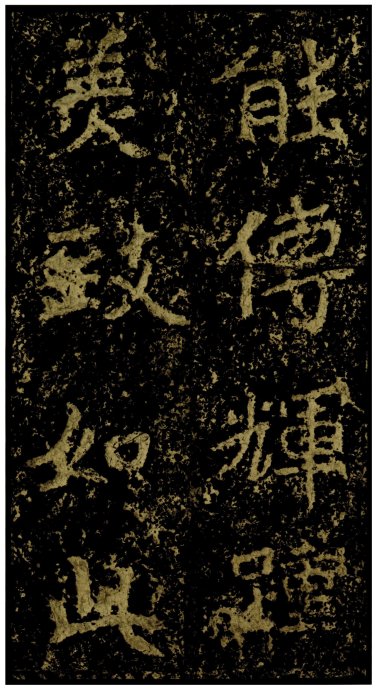 能傳輝
美致如此